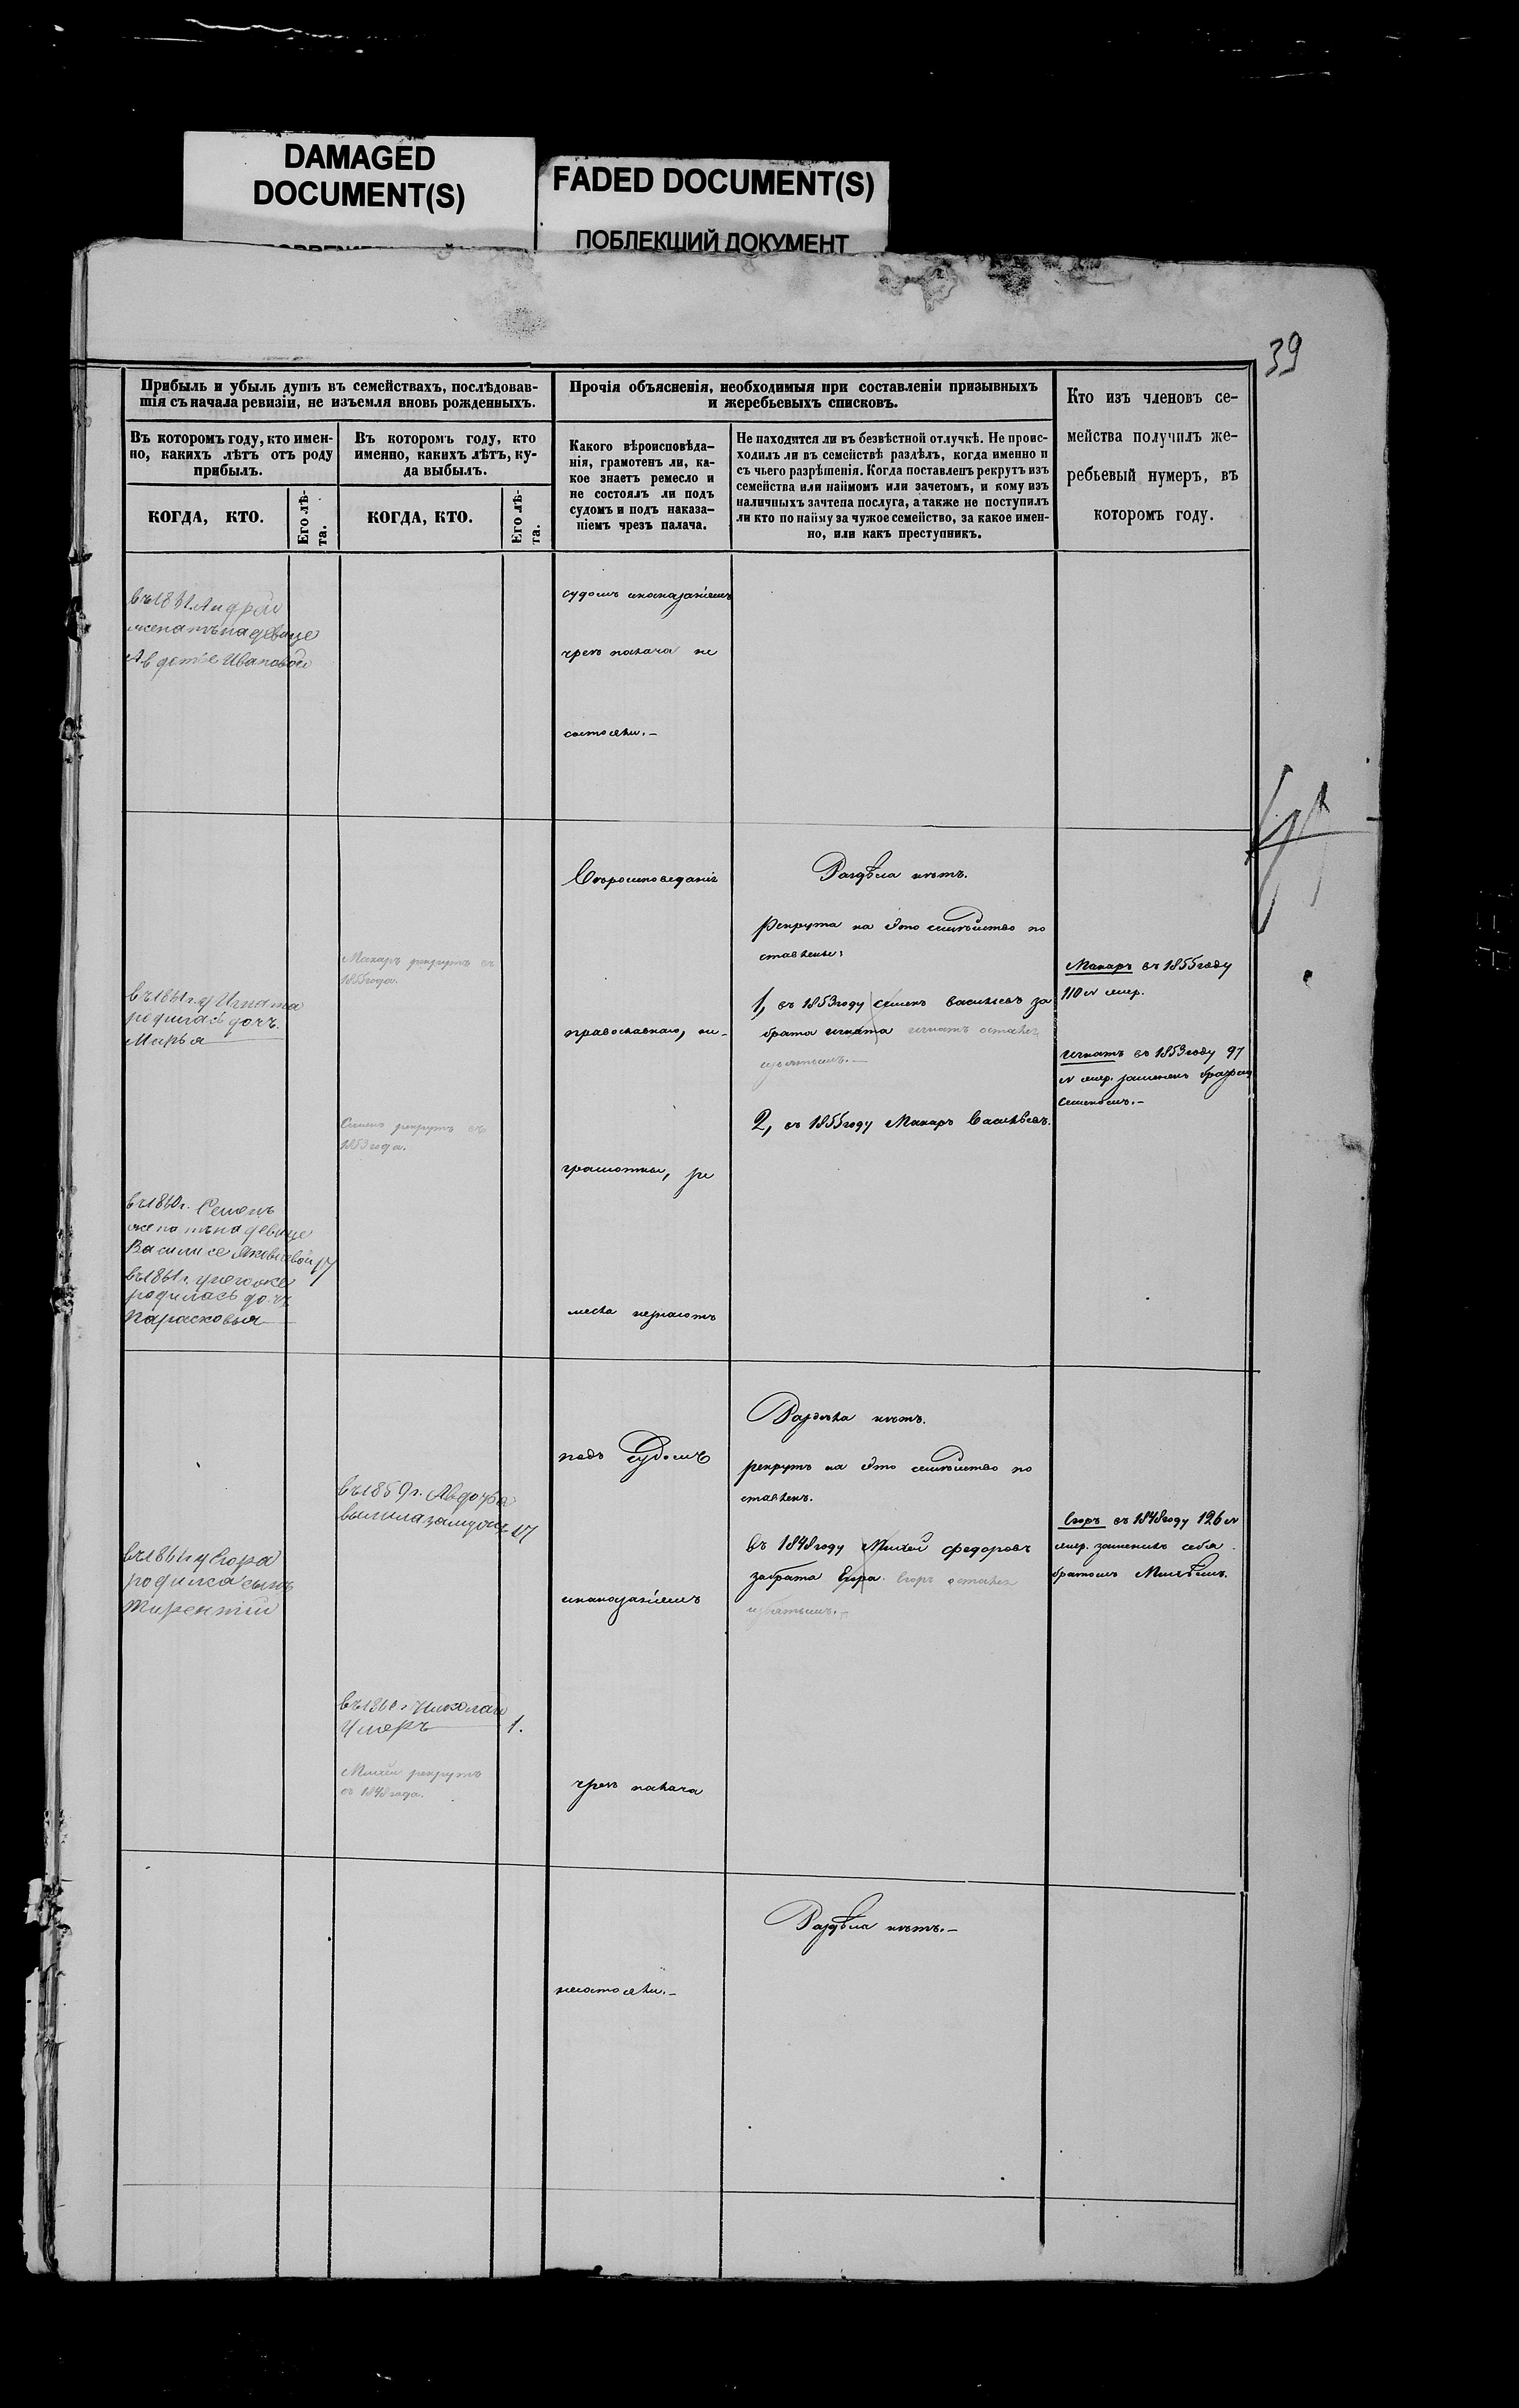 DAMAGED
DOCUMENT(S)
FADED DOCUMENT(S)
ПОБЛЕКШИЙ ДОКУМЕНТ
39
Прибыль и убыль душъ въ семействахъ, послѣдовав-
шія съ начала ревизіи, не изъемля вновь рожденныхъ.
Въ которомъ году, кто имен-
но, какихъ лѣтъ отъ роду
прибылъ.
Въ которомъ году, кто
именно, какихъ лѣтъ, ку-
да выбылъ.
КОГДА, КТО.
Его лѣ-
та.
КОГДА, КТО.
Его лѣ-
та.
Прочія объясненія, необходимыя при составленіи призывныхъ
и жеребьевыхъ списковъ.
Какого вѣроисповѣда-
нія, грамотенъ ли, ка-
кое знаетъ ремесло и
не состоялъ ли подъ
судомъ и подъ наказа-
ніемъ чрезъ палача.
Не находится ли въ безвѣстной отлучкѣ. Не проис-
ходилъ ли въ семействѣ раздѣлъ, когда именно и
съ чьего разрѣшенія. Когда поставленъ рекрутъ изъ
семейства или наймомъ или зачетомъ, и кому изъ
наличныхъ зачтена послуга, а также не поступилъ
ли кто по найму за чужое семейство, за какое имен-
но, или какъ преступникъ.
Кто изъ членовъ се-
мейства получилъ же-
ребьевый нумеръ, въ
которомъ году.
въ 1861 Андрей
женатъ на девице
Авдотье Ивановой
судомъ инаказаніемъ
чрезъ палача не
состояли.—
въ 1861 г. у Игната
родилась дочь
Марья
въ 1860 г. Семенъ
женатъ на девице
Василисе Яковлевой 17
въ 1861 г. у него же
родилась дочь
Парасковья
Макаръ рекрутъ въ
1855 года.
Семенъ рекрутъ въ
1853 года.
Вероисповеданіе
православнаго, не-
грамотные, ре
месла незнаютъ
Раздѣла нетъ.
Рекрута на это семейство по
ставлены:
1, въ 1853 году Семенъ Васильевъ за
брата Игната Игнатъ осталея
изъятымъ.—
2, въ 1855 году Макаръ Васильевъ.
Макаръ въ 1855 году
110 № жер.
Игнатъ въ 1853 году 97
№ жер. замененъ братомъ
Семеномъ.—
въ 1861 г у Егора
родился сынъ
Тирентій
въ 1859 г. Авдотья
вышла замужъ 17
въ 1860 г Николай
Умеръ 1.
Михей рекрутъ
въ 1848 года.
подъ судомъ
инаказаніемъ
чрезъ палача
Раздела нетъ.
рекрутъ на это семейство по
ставленъ.
въ 1848 году Михей Федоровъ
забрата Егора. Егоръ осталея
изъятымъ.—
Егоръ въ 1848 году 126 №
жер. заменилъ себя
братомъ Михѣемъ.
несостояли.—
Раздѣла нетъ.—